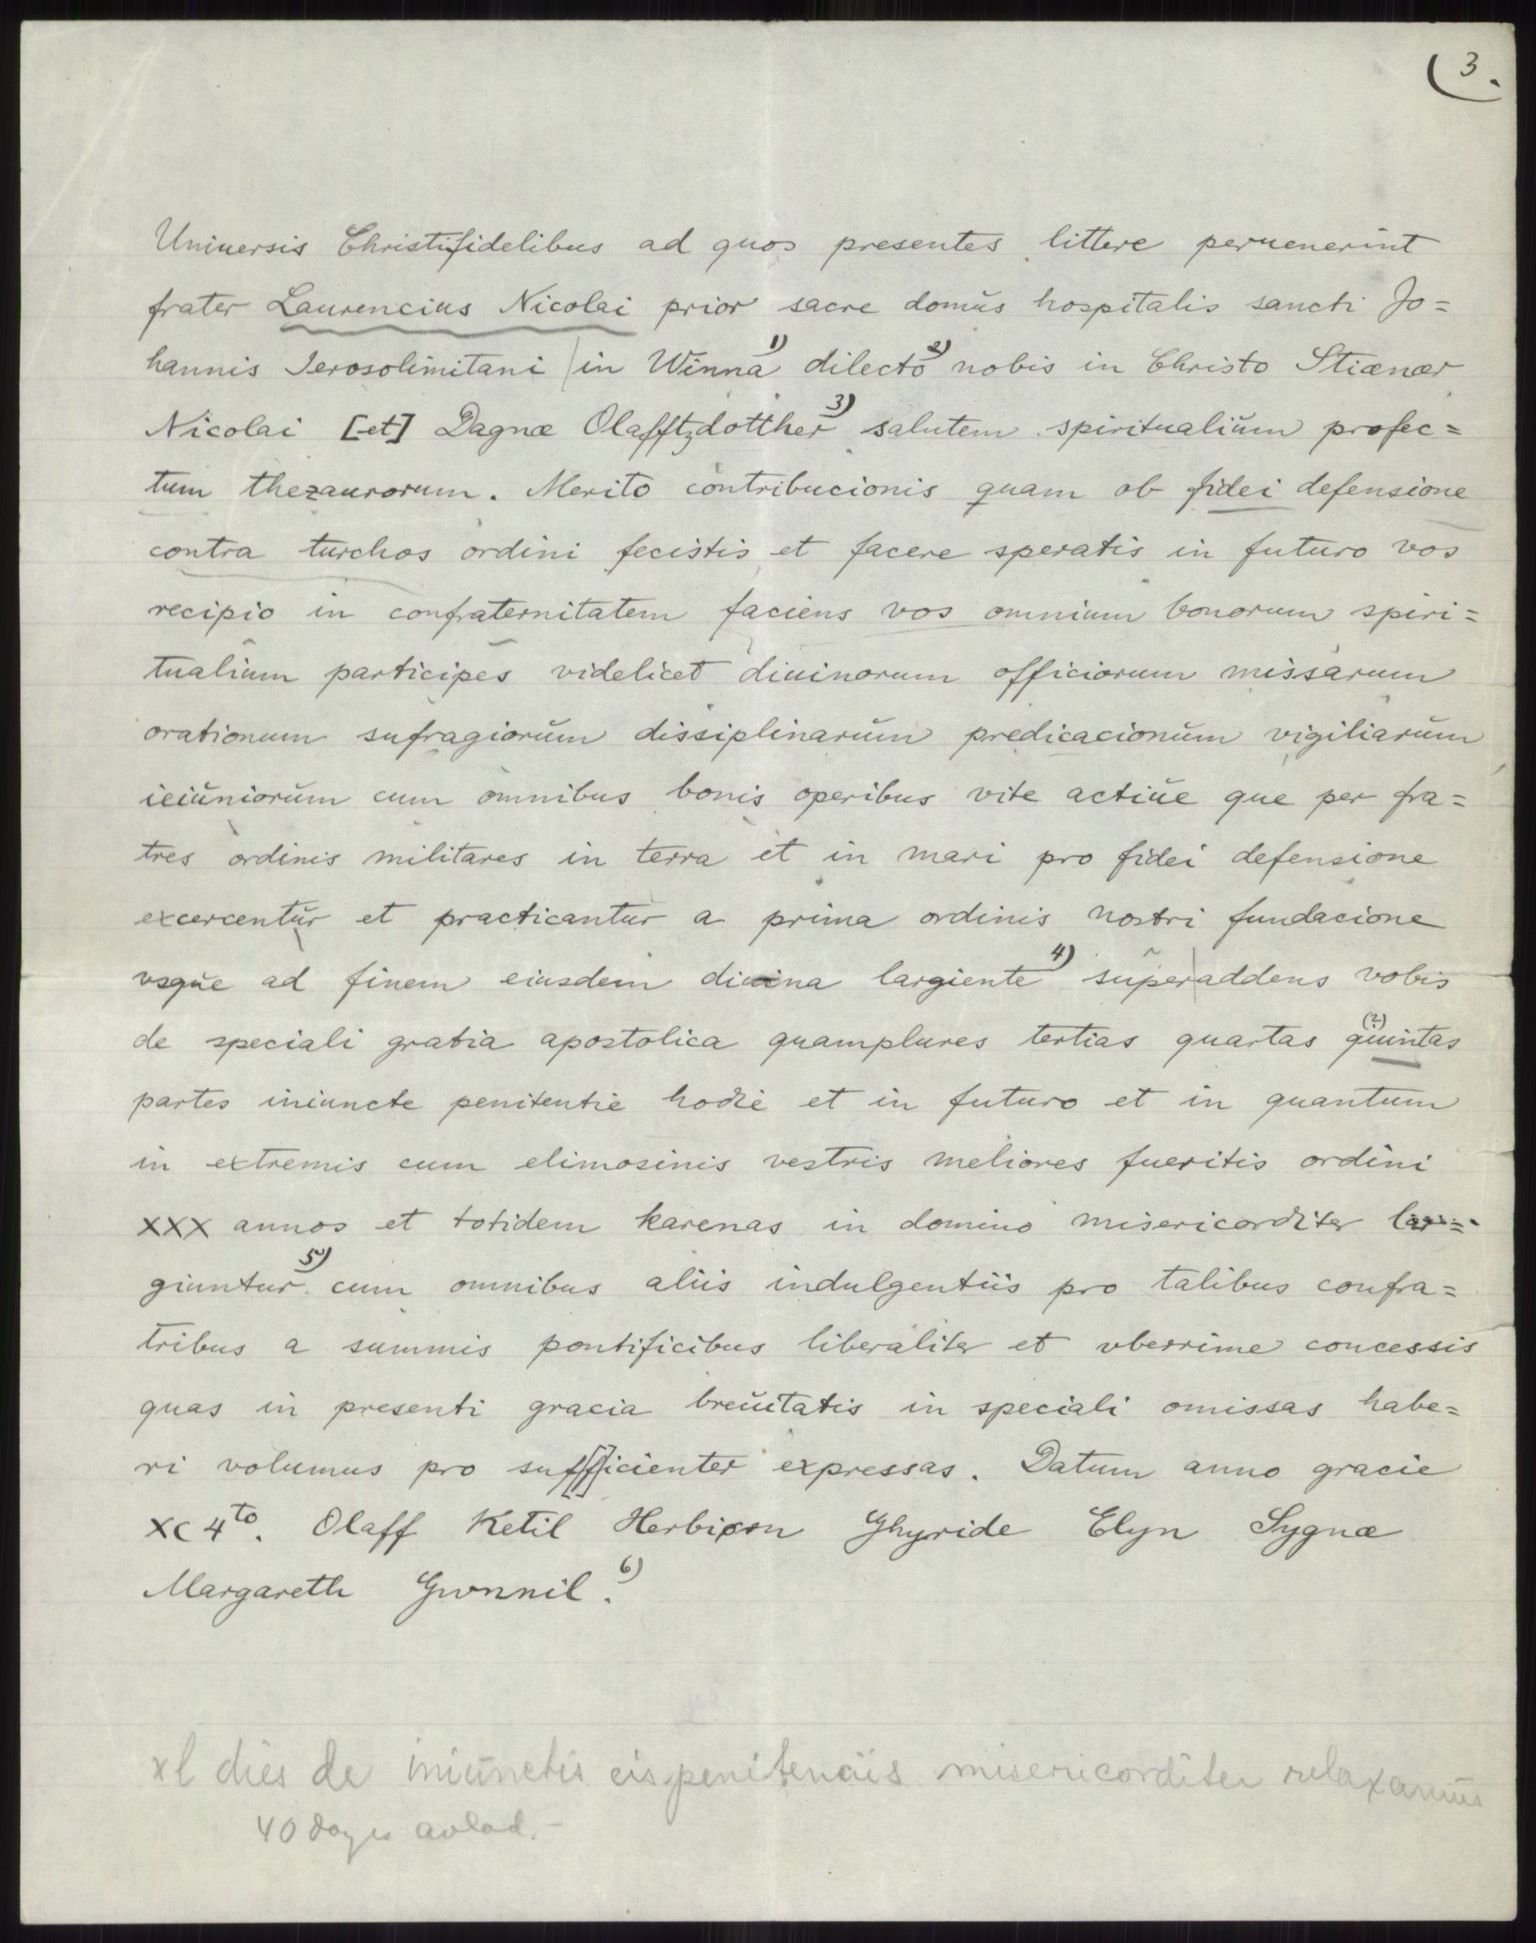 3.
Uniuersis Christifidelibus ad quos presentes littere peruenerint
frater Laurencius Nicolai prior sacre domus hospitalis sancti Jo=
hannis Ierosolimitani in Winna 1) dilecto 2) nobis in Christo Stiænær
Nicolai [et] Dagnæ Olafftzdotther 3) salutem spiritualium profec=
tum thezaurorum. Merito contribucionis quam ob fidei defensione
contra turchos ordini fecistis et facere speratis in futuro vos
recipio in confraternitatem faciens vos omnium bonorum spiri=
tualium participes videlicet diuinorum officiorum missarum
orationum sufragiorum dissiplinarum predicacionum vigiliarum
ieiuniorum cum omnibus bonis operibus vite actiue que per fra=
tres ordinis militares in terra et in mari pro fidei defensione
excercentur et practicantur a prima ordinis nostri fundacione
vsque ad finem eiusdem diuina largiente 4) superaddens vobis
de speciali gratia apostolica quamplures tertias quartas quintas (?)
partes iniuncte penitentie hodie et in futuro et in quantum
in extremis cum elimosinis vestris meliores fueritis ordini
XXX annos et totidem karenas in domino misericorditer lar=
giuntur 5) cum omnibus aliis indulgentiis pro talibus confra=
tribus a summis pontificibus liberaliter et vberrime concessis
quas in presenti gracia breuitatis in speciali omissas habe=
ri volumus pro suf[f]icienter expressas. Datum anno gracie
XC 4to. Olaff Ketil Herbiorn Ghyride Elyn Sygnæ
Margareth Gwnnil. 6)
xl dies de iniunctis eis penitenciis misericorditer relaxamus
40 dages avlad.-